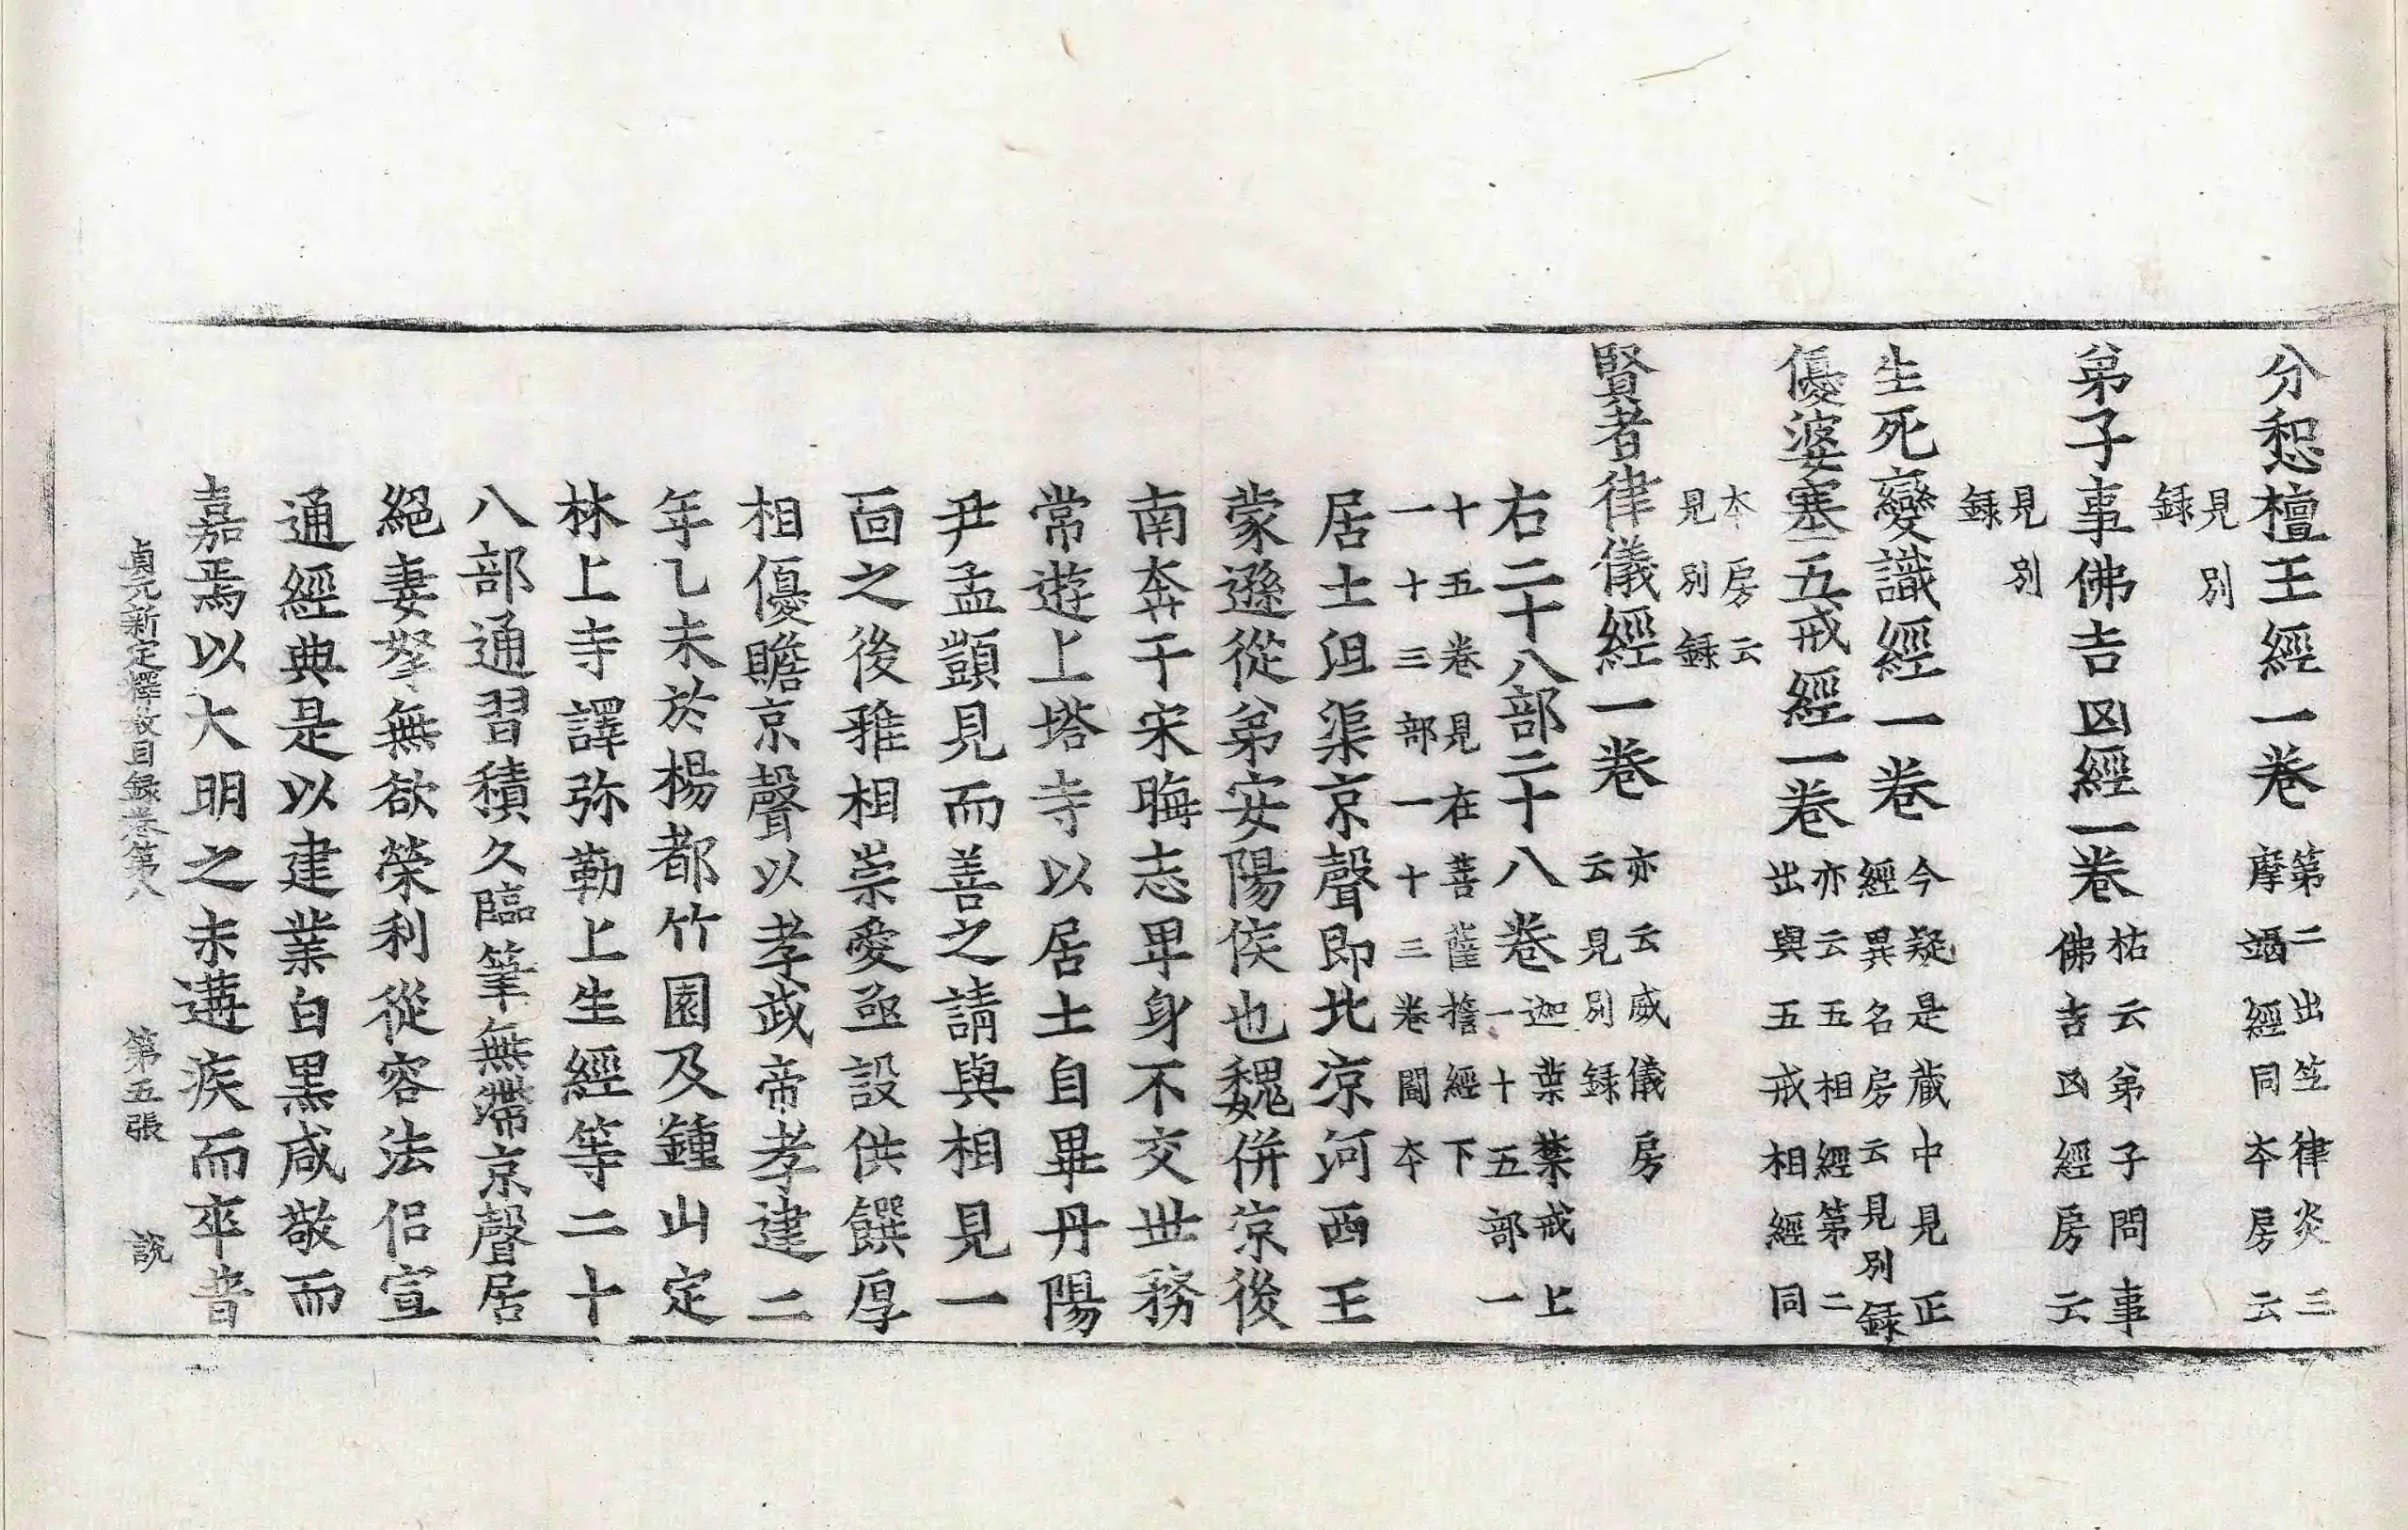 分恕檀王經一卷第二出竺律炎三摩竭經同本房云
見別録
弟子事佛吉凶經一卷祐云弟子問事佛吉凶經房云
見別録
生死變識經一卷今疑是藏中見正經異名房云見別録
優婆塞五戒經一卷亦云五相經第二出與五戒相經同
本房云見別録
賢者律儀經一卷亦云威儀房云見別録
右二十八部二十八卷迦葉禁戒上一十五部一
十五卷見在菩薩擔經下一十三部一十三卷闕本
居士沮渠京聲即北涼河西王
蒙遜從弟安陽侯也魏併涼後
南奔于宋晦志卑身不交世務
常遊上塔寺以居士自畢丹陽
尹孟顗見而善之請與相見一
面之後雅相崇愛亟設供饌厚
相優贍京聲以孝武帝孝建二
年乙未於楊都竹園及鍾山定
林上寺譯弥勒上生經等二十
八部通習積久臨筆無滯京聲居
絕妻孥無欲榮利從容法侶宣
通經典是以建業白黑咸敬而
嘉焉以大明之末遘疾而卒昔
貞元新定釋教目録卷第八 第五張 說